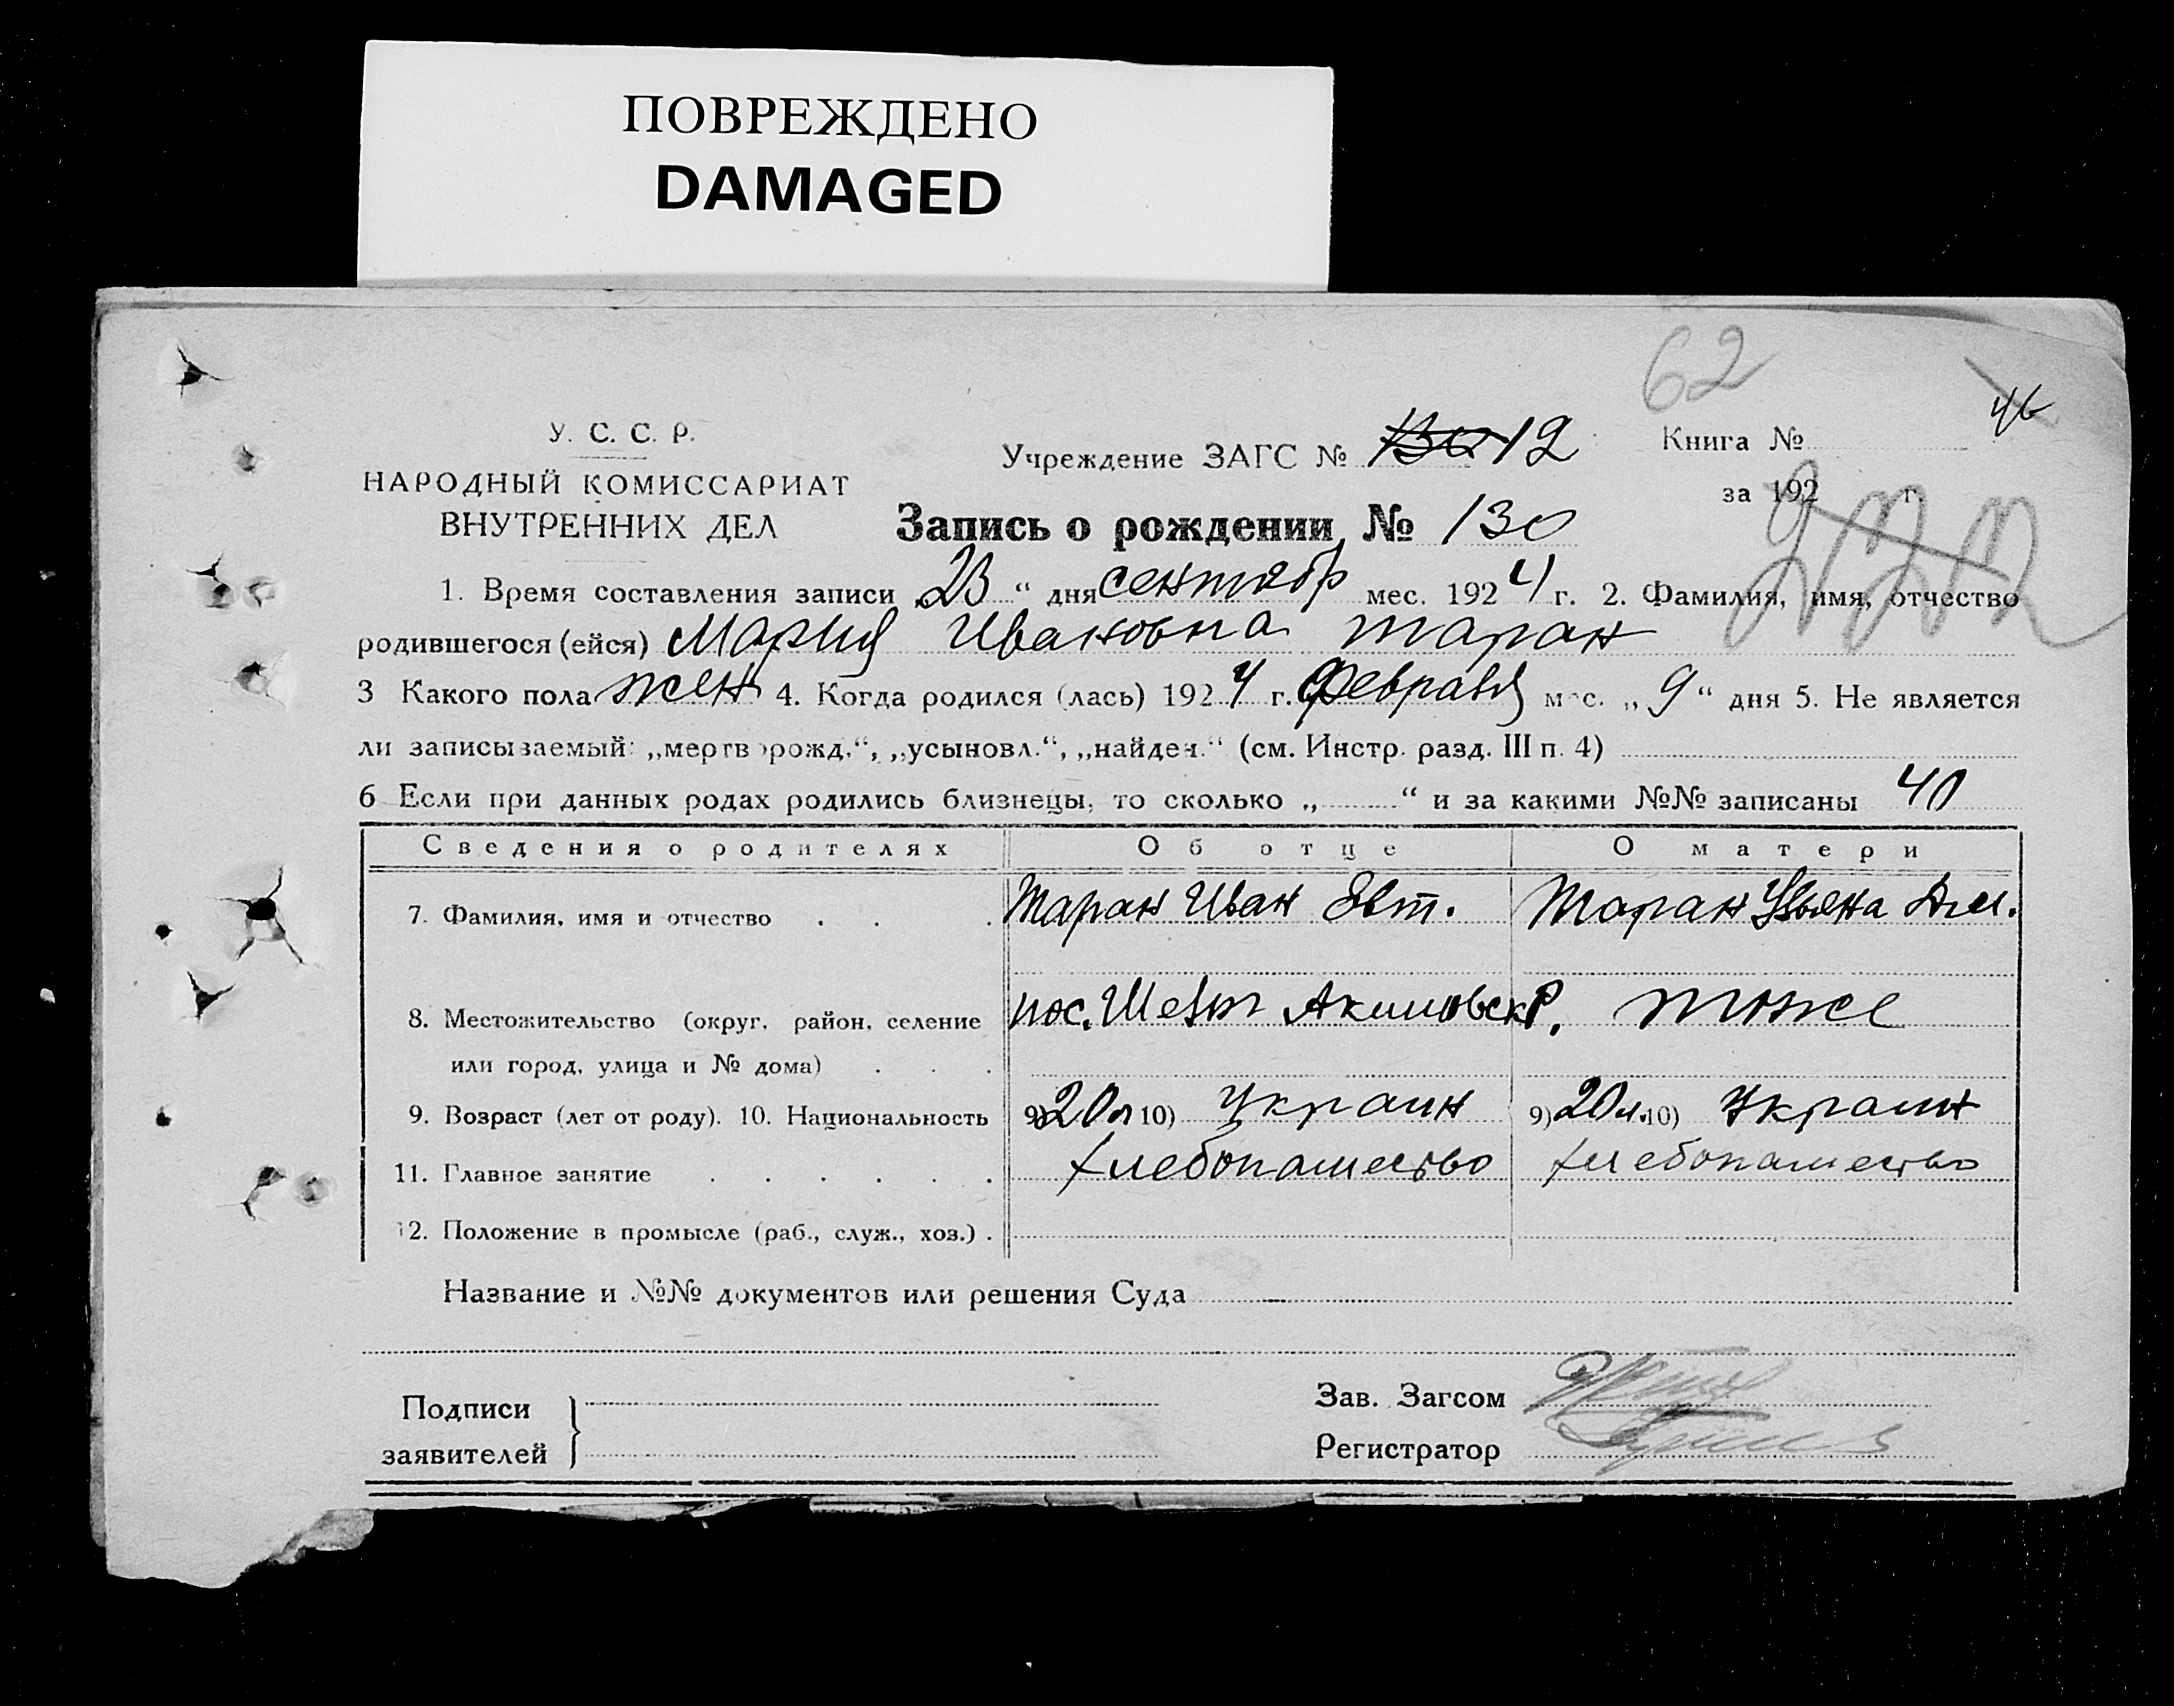 ПОВРЕЖДЕНО
DAMAGED
62
46
У. С. С. Р.
НАРОДНЫЙ КОМИССАРИАТ
ВНУТРЕННИХ ДЕЛ
Учреждение ЗАГС № 130 12
Книга №
за 192 г.
Запись о рождении № 130
1. Время составления записи „23“ дня сентябр мес. 1924 г. 2. Фамилия, имя, отчество
родившегося (ейся) Мария Ивановна Таран
3 Какого пола жен 4. Когда родился (лась) 1924 г. Февраля мес. „9“ дня 5. Не является
ли записываемый: „мертворожд.“, „усыновл.“, „найден.“ (см. Инстр. разд. III п. 4)
6 Если при данных родах родились близнецы, то сколько „ “ и за какими №№ записаны 40
Сведения о родителях Об отце О матери
7. Фамилия, имя и отчество . . . Таран Иван Евт. Таран Ульяна Дм.
8. Местожительство (округ, район, селение пос. Акимовск Р. тоже
или город, улица и № дома) . . .
9. Возраст (лет от роду). 10. Национальность 9) 20 л 10) Украин 9) 20 л. 10) Украин
11. Главное занятие . . . . . . хлебопашество хлебопашество
12. Положение в промысле (раб., служ., хоз.) .
Название и №№ документов или решения Суда
Подписи
заявителей
Зав. Загсом
Регистратор